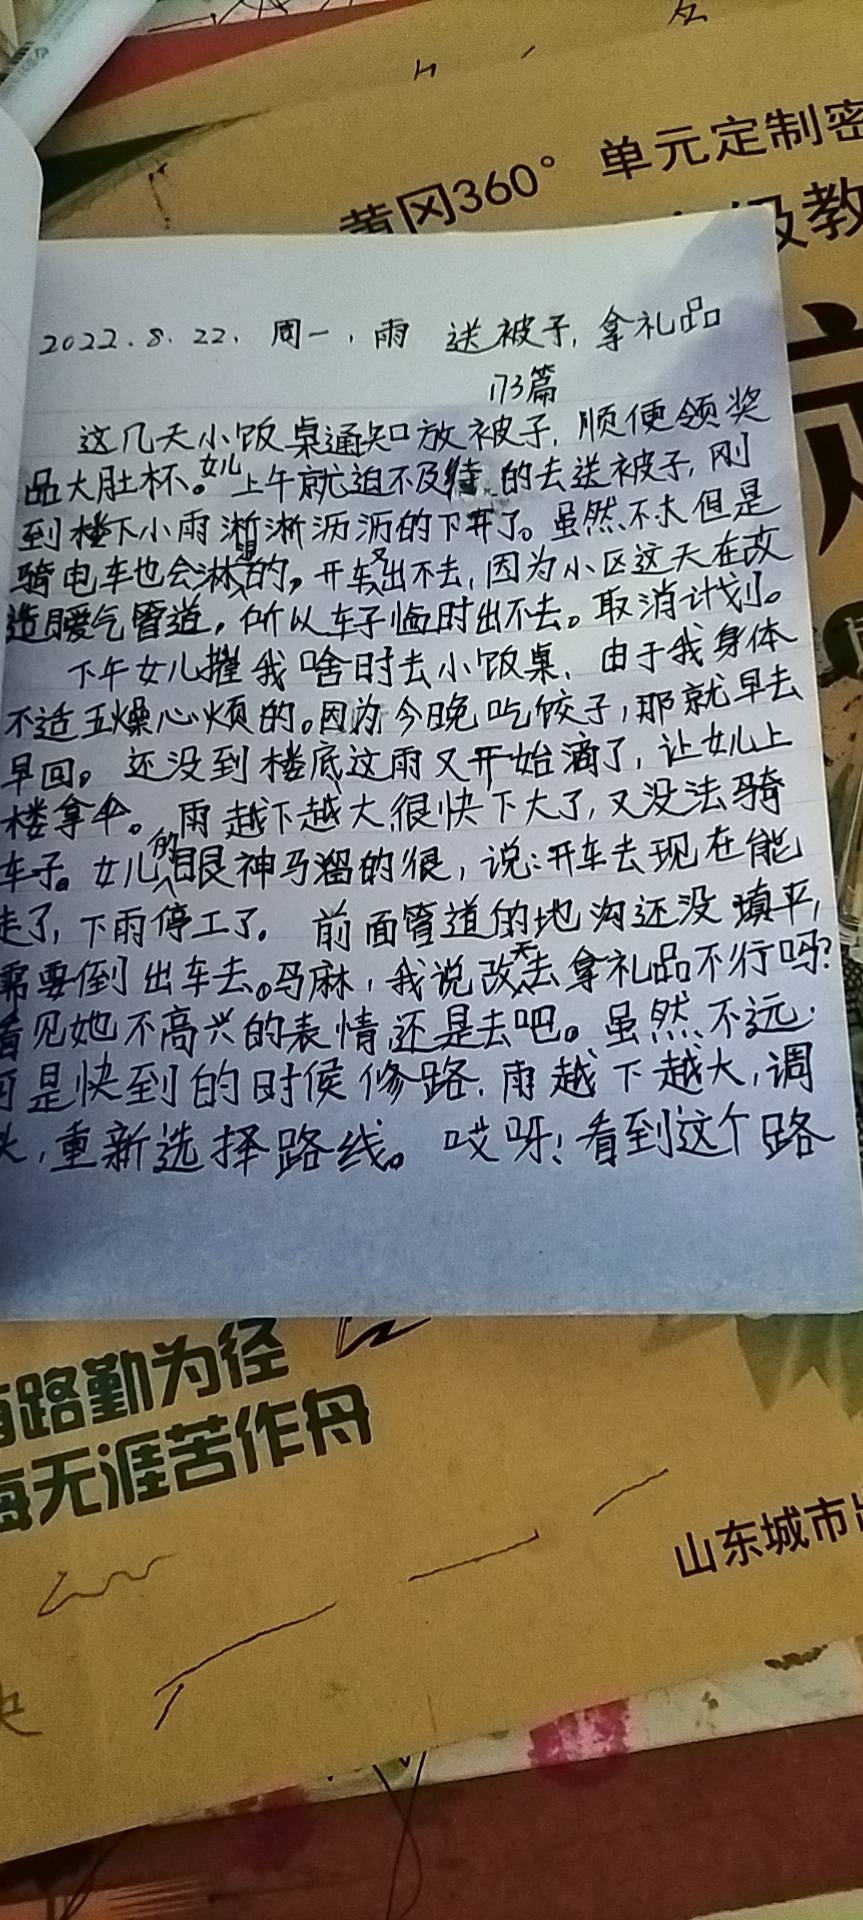 黄冈360° 单元定制密
级教
2022.8.22. 周一,雨 送被子,拿礼品
173篇
这几天小饭桌通知放被子,顺便领奖
品大肚杯。女儿上午就迫不及待的去送被子,刚
到楼下小雨淅淅沥沥的下开了。虽然不大但是
骑电车也会淋湿的。开车又出不去,因为小区这天在改
造暖气管道,所以车子临时出不去。取消计划。
下午女儿摧我啥时去小饭桌,由于我身体
不适五燥心烦的。因为今晚吃饺子,那就早去
早回。还没到楼底这雨又开始滴了,让女儿上
楼拿伞。雨越下越大很快下大了,又没法骑
车子。女儿的眼神马溜的很,说:开车去现在能
走了,下雨停工了。前面管道的地沟还没填平,
需要倒出车去。马麻,我说改天去拿礼品不行吗?
看见她不高兴的表情还是去吧。虽然不远.
可是快到的时候修路,雨越下越大,调
头,重新选择路线。哎呀!看到这个路
路勤为径
海无涯苦作舟
山东城市出